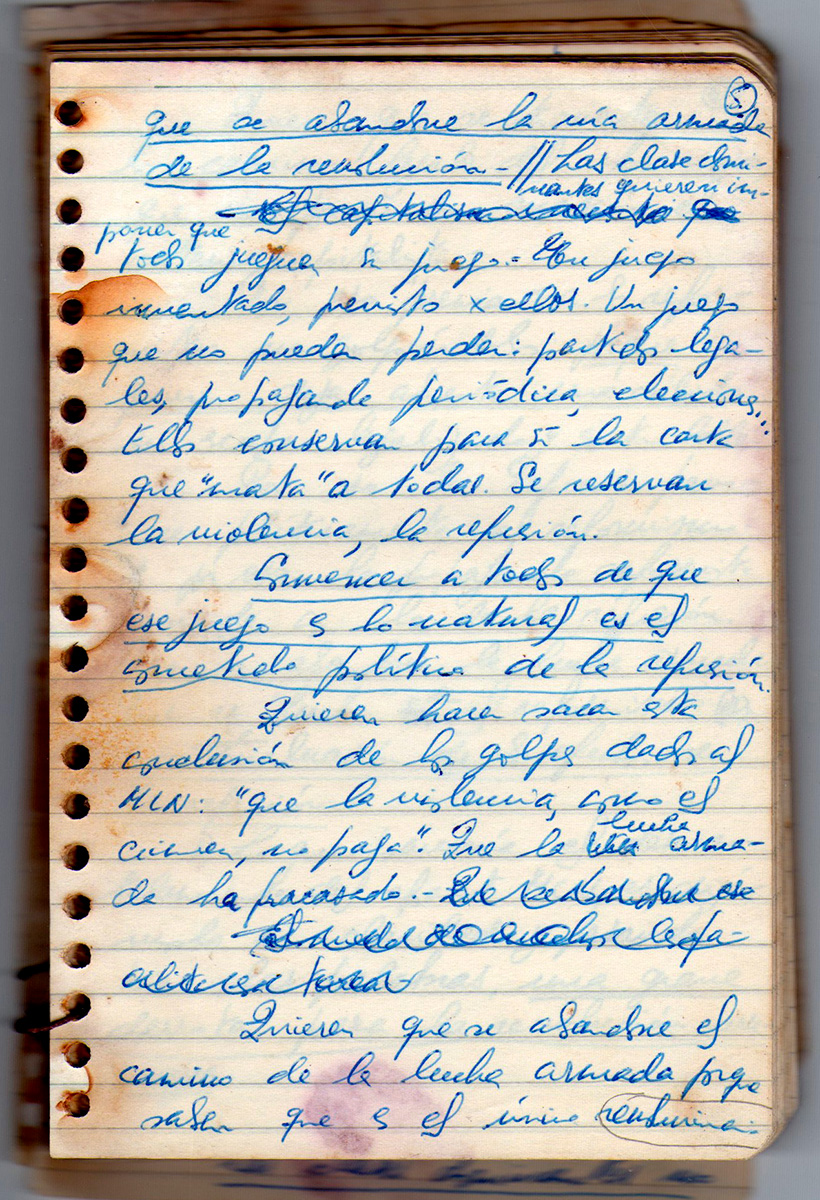 5
que se abandone la vía armada
de la revolución - // Las clase domi-
nantes quieren im-
poner que
todos jueguen su juego.= Un juego
inventado, previsto x ellos. Un juego
que no pueden perder: partidos lega-
les, propaganda periódica, elecciones...
Ellos conservan para sí la carta
que "mata" a todas. Se reservan
la violencia, la represión.
Convencer a todos de que
ese juego es lo natural es el
cometido político de la represión.
Quieren hacer sacar esta
conclusión de los golpes dados al
MLN: "que la violencia, como el
crimen, no paga". Que la lucha arma-
da ha fracasado.-
Quieren que se abandone el
camino de la lucha armada porque
saben que es el único revoluciona-